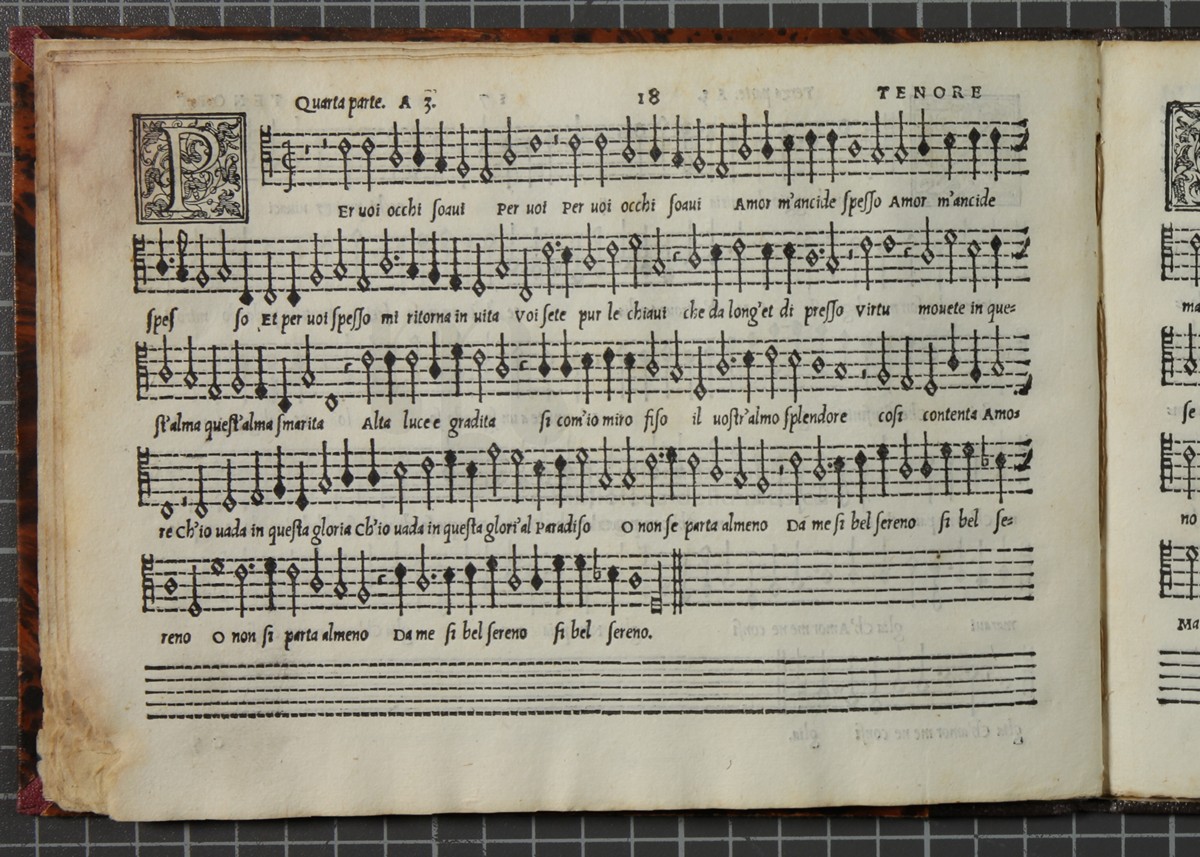 Quarta parte. A 3. 18 TENORE
PEr uoi occhi soaui Per uoi Per uoi occhi soaui Amor m'ancide spesso Amor m'ancide
spes so Et per uoi spesso mi ritorna in uita Voi sete pur le chiaui che da long'et di presso virtu mouete in que=
st'alma quest'alma smarita Alta luce e gradita si com'io miro fiso il uostr'almo splendore cosi contenta Amo=
re Ch'io uada in questa gloria Ch'io uada in questa glori'al Paradiso O non se parta almeno Da me si bel sereno si bel se=
reno O non si parta almeno Da me si bel sereno si bel sereno.
ma
se
no
Ma